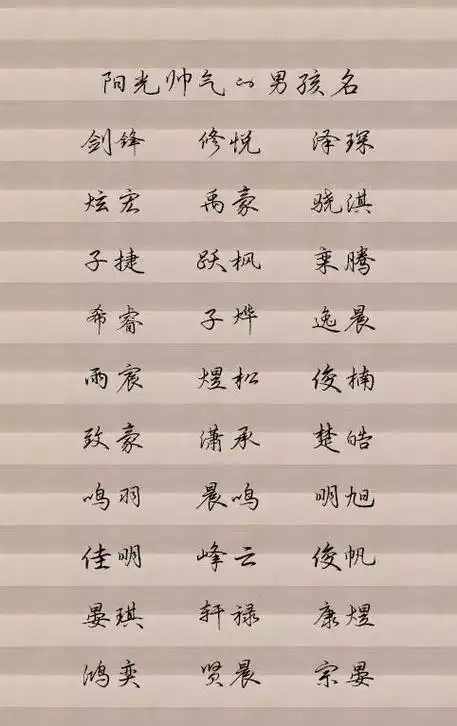 阳光帅气的男孩名
剑锋 修悦 泽琛
炫宏 禹豪 骁淇
子捷 跃枫 栾腾
希睿 子烨 逸晨
雨宸 煜松 俊楠
致豪 潇承 楚皓
鸣羽 晨鸣 明旭
佳明 峰云 俊帆
晏琪 轩禄 康煜
鸿奕 贤晨 宗晏